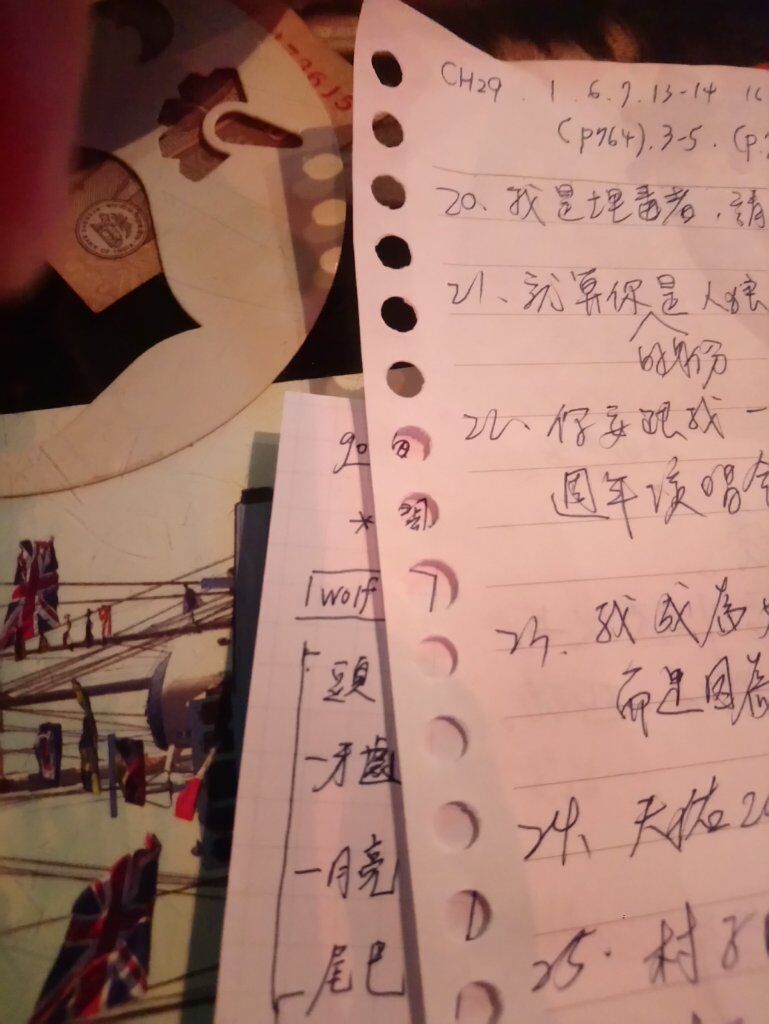 CH29. 1. 6. 7. 13-14
(p764). 3-5. (p.
20、我是埋毒者，請
21、就算你是人狼
的身份
22、你要跟我一
週年演唱會
23、我成為
而是因為
24、天祐2
25. 村子
90
*
1 wolf
頭
一牙齒
一月亮
尾巴